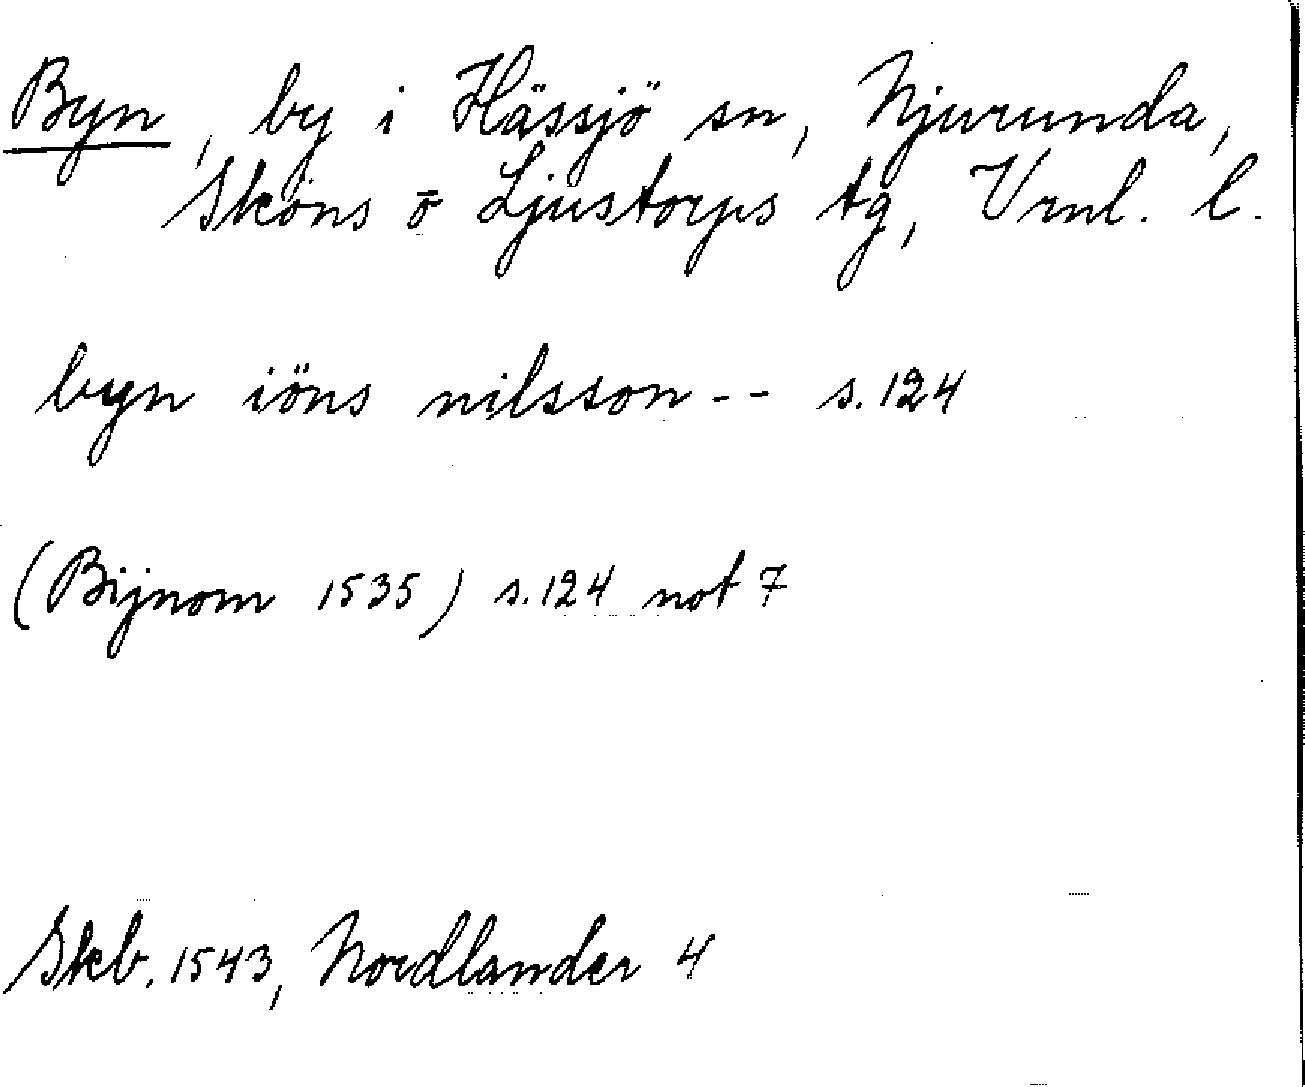 Byn, by i Hässjö sn, Njurunda,
Sköns o Ljustorps tg, Vrnl. l.
byn iöns nilsson -- s. 124
(Bijnom 1535) s. 124 not 7
Skb. 1543, Nordlander 4